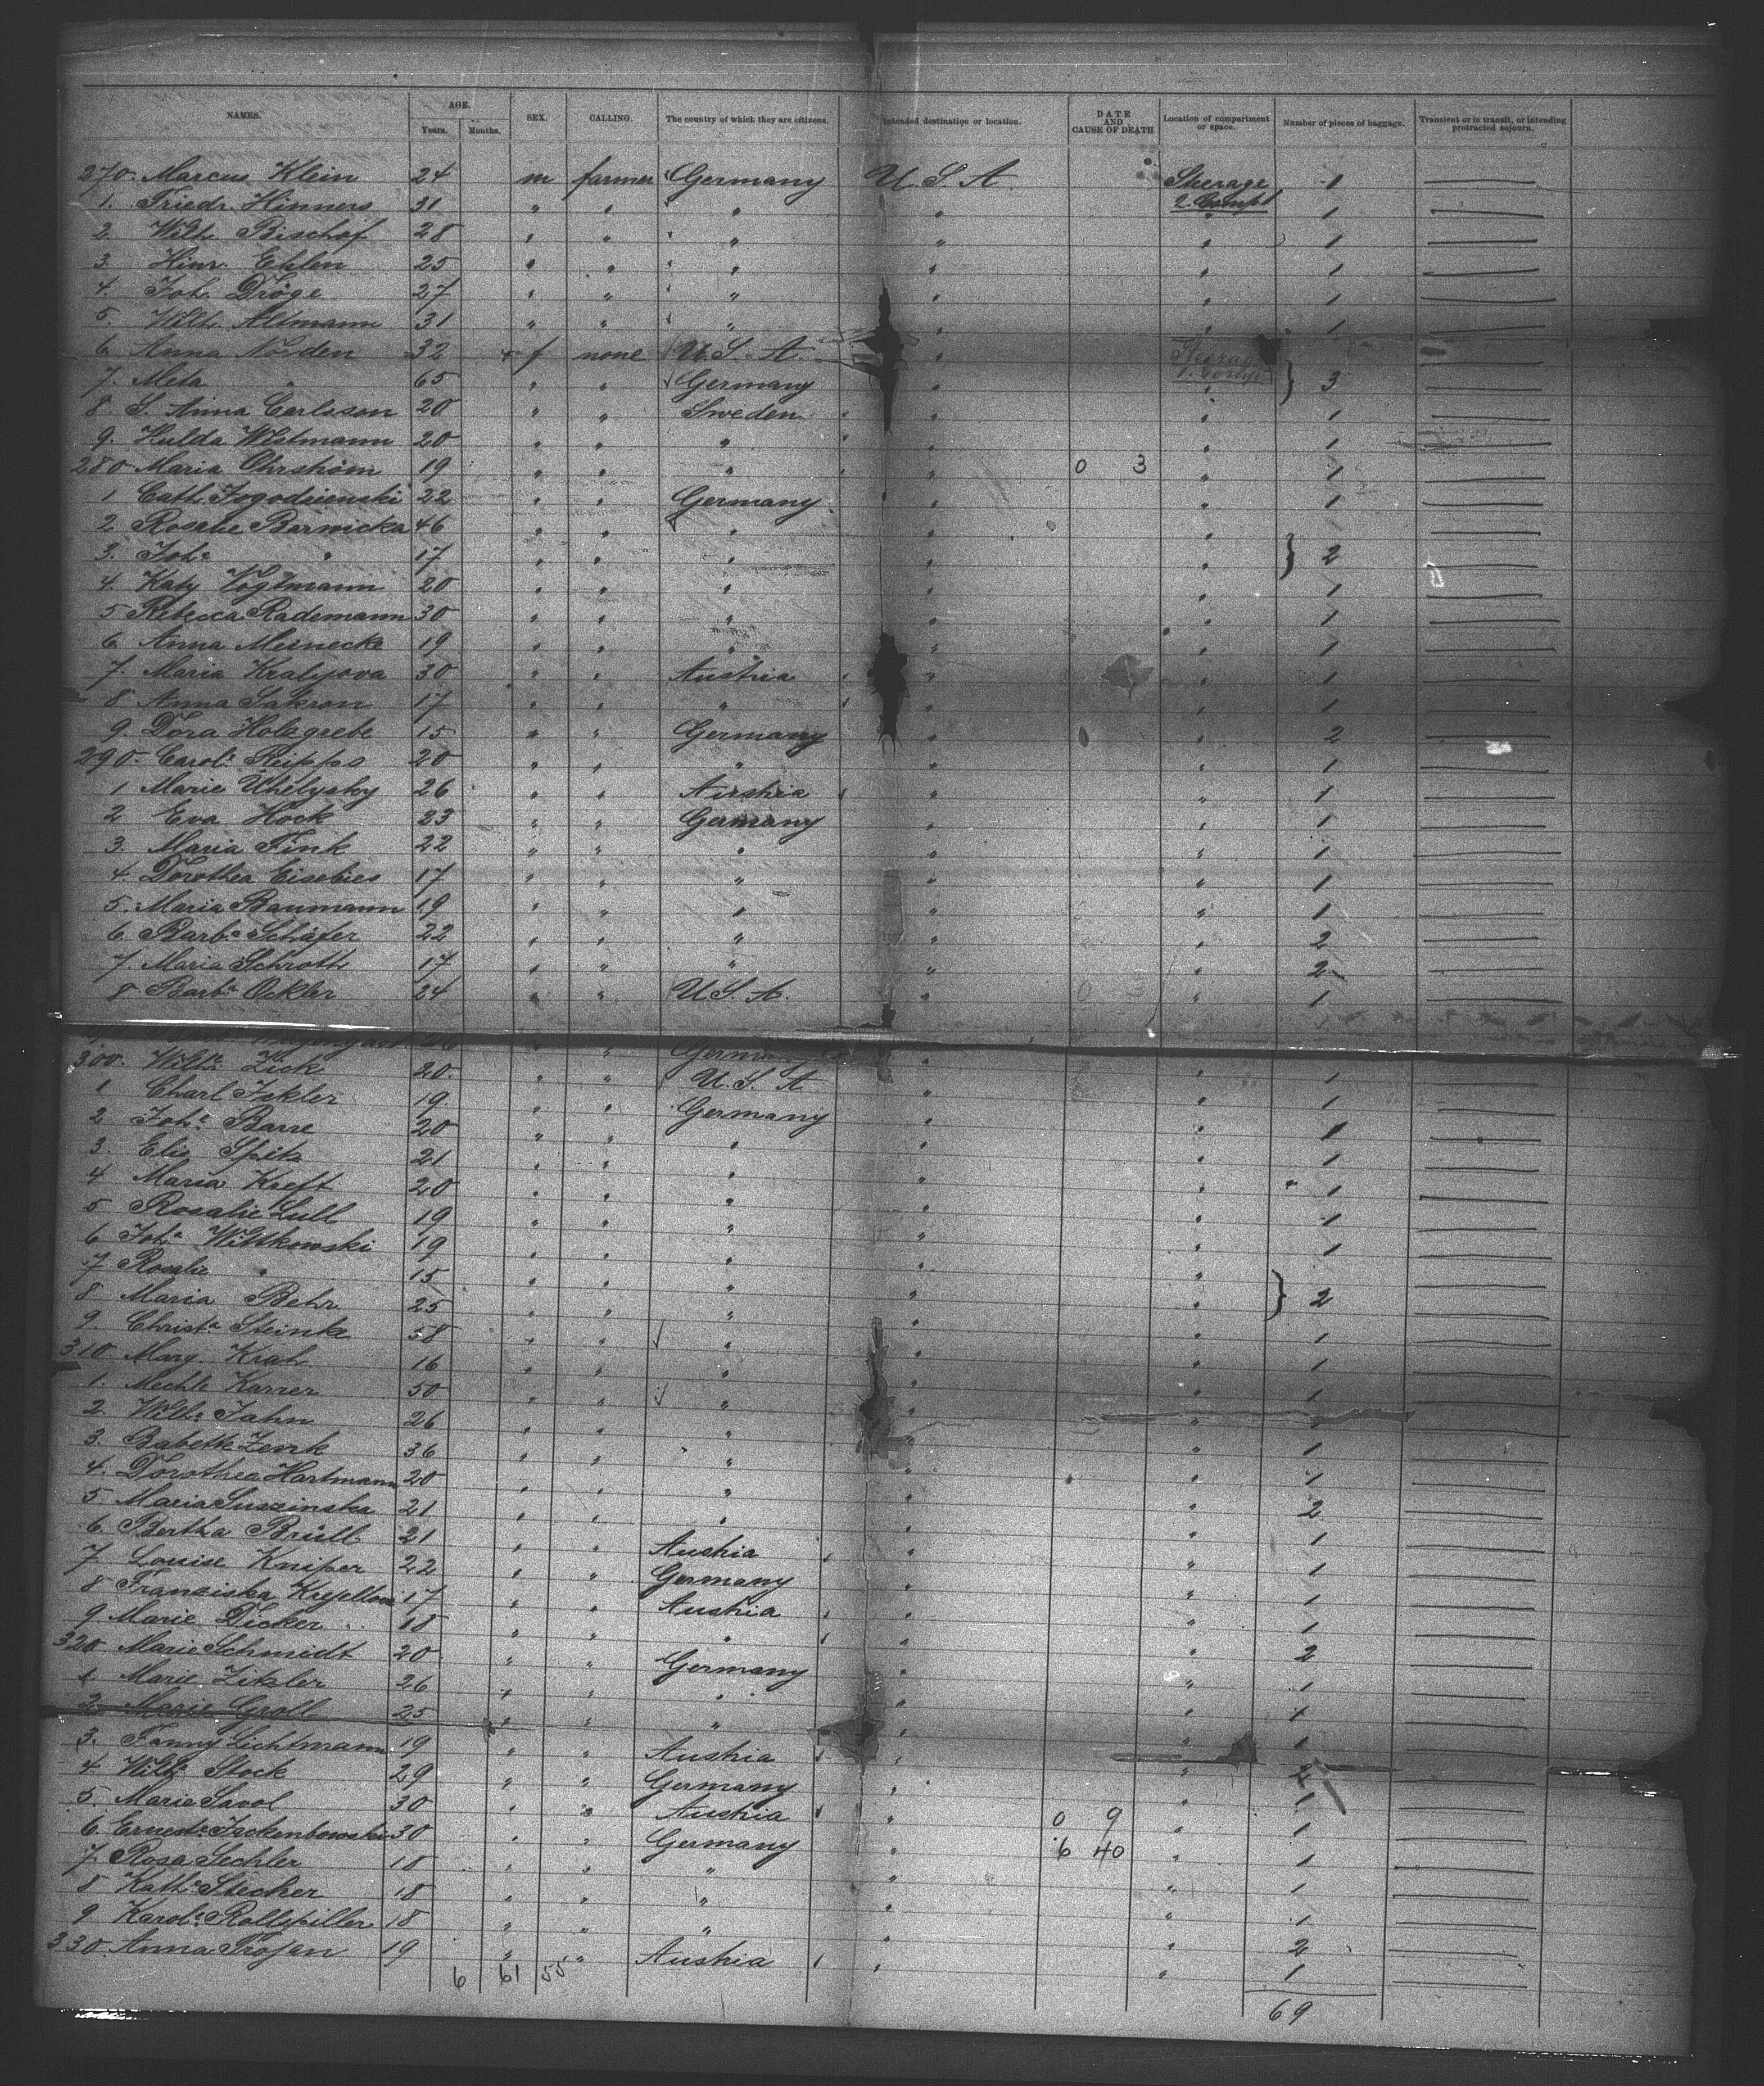 NAMES. AGE. Years. Months. SEX. CALLING. The country of which they are citizens. Intended destination or location. DATE AND CAUSE OF DEATH Location of compartment or space. Number of pieces of baggage. Transient or in transit, or intending protracted sojourn.
270. Marcus Klein 24 m farmer Germany U. S. A. Steerage 2. Comp 1
1. Friedr. Hinners 31 " " " " " 1
2. Wilh. Bischof 28 " " " " " 1
3. Hinr. Ehlen 25 " " " " " 1
4. Joh. Dröge 27 " " " " " 1
5. Wilh. Altmann 31 " " " " " 1
6. Anna Norden 32 f none U. S. A. " Steerage
7. Meta " 65 " " Germany " " } 3
8. S. Anna Carlsson 20 " " Sweden " " 1
9. Hulda Westmann 20 " " " " " 1
280 Maria Ohrstrom 19 " " " " 0 3 " 1
1 Cath. 22 " " Germany " " 1
2. Rosalie Barwicka 46 " " " " "
3. Joh.a " 17 " " " " " } 2
4. Katy Vogtmann 20 " " " " " 1
5 Rebecca Rademann 30 " " " " " 1
6. Anna Meinecke 19 " " " " " 1
7. Maria Kralyova 30 " " Austria " " 1
8 Anna Sakron 17 " " " " " 1
9. Dora Holzgrebe 15 " " Germany " " 2
290. Carol. Reipps 20 " " " " " 1
1 Marie Uhelysky 26 " " Austria " " 1
2 Eva Hock 23 " " Germany " " 1
3. Maria Fink 22 " " " " " 1
4. Dorothea 17 " " " " " 1
5. Maria Baumann 19 " " " " " 1
6. Barb.a Schäfer 22 " " " " " 2
7. Maria Schroth 17 " " " " " 2
8 Barb.a Ockler 24 " " U. S. A. " 0 3 " 1
Germany
300. Wilh.e Zick 20. " " U. S. A " " 1
1 Charl. Ickler 19 " " Germany " " 1
2 Joh.e Barre 20 " " " " " 1
3. Elis Spitz 21 " " " " " 1
4 Maria Kreft 20 " " " " " 1
5 Rosalie Lull 19 " " " " " 1
6 Joh.a Wittkowski 19 " " " " " 1
7 Rosalie " 15 " " " " "
8 Maria Behr 25 " " " " " } 2
9. Christ.a Steinke 58 " " " " " 1
310. Marg. Krah 16 " " " " " 1
1. Mechle Karrer 50 " " " " " 1
2. Wilh.e Jahn 26 " " " " "
3. Babette Zenk 36 " " " " " 1
4. Dorothea Hartmann 20 " " " " " 1
5 Maria Suszinska 21 " " " " " 2
6. Bertha Brüll 21 " " Austria " " 1
7. Louise Kniper 22 " " Germany " " 1
8 Franziska 17 " " Austria " " 1
9 Marie Dicker 18 " " " " " 1
320 Marie Schmidt 20 " " Germany " " 2
1. Marie Zitzler 26 " " " " " 1
2 Marie Groll 25 " " " " " 1
3. Fanny Lichtmann 19 " " Austria " " 1
4 Wilh.e Stock 29 " " Germany " "
5. Marie Savol 30 " " Austria " 0 9 " 1
6. Ernest.e 30 " " Germany " 6 40 " 1
7 Rosa Sechler 18 " " " " " 1
8 Kath.e Stecher 18 " " " " " 1
9 Karol.e 18 " " " " " 2
330 Anna Trojan 19 " " Austria " " 1
6 61 55 69